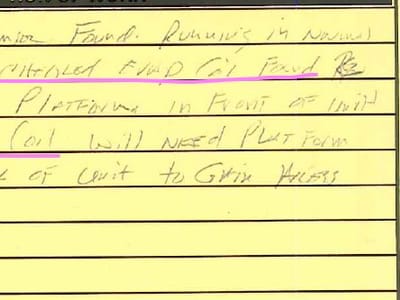 Found. Running in Normal
EVAP Coil Found
Platform in Front of unit
Coil will NEED Platform
of Unit to Gain Access